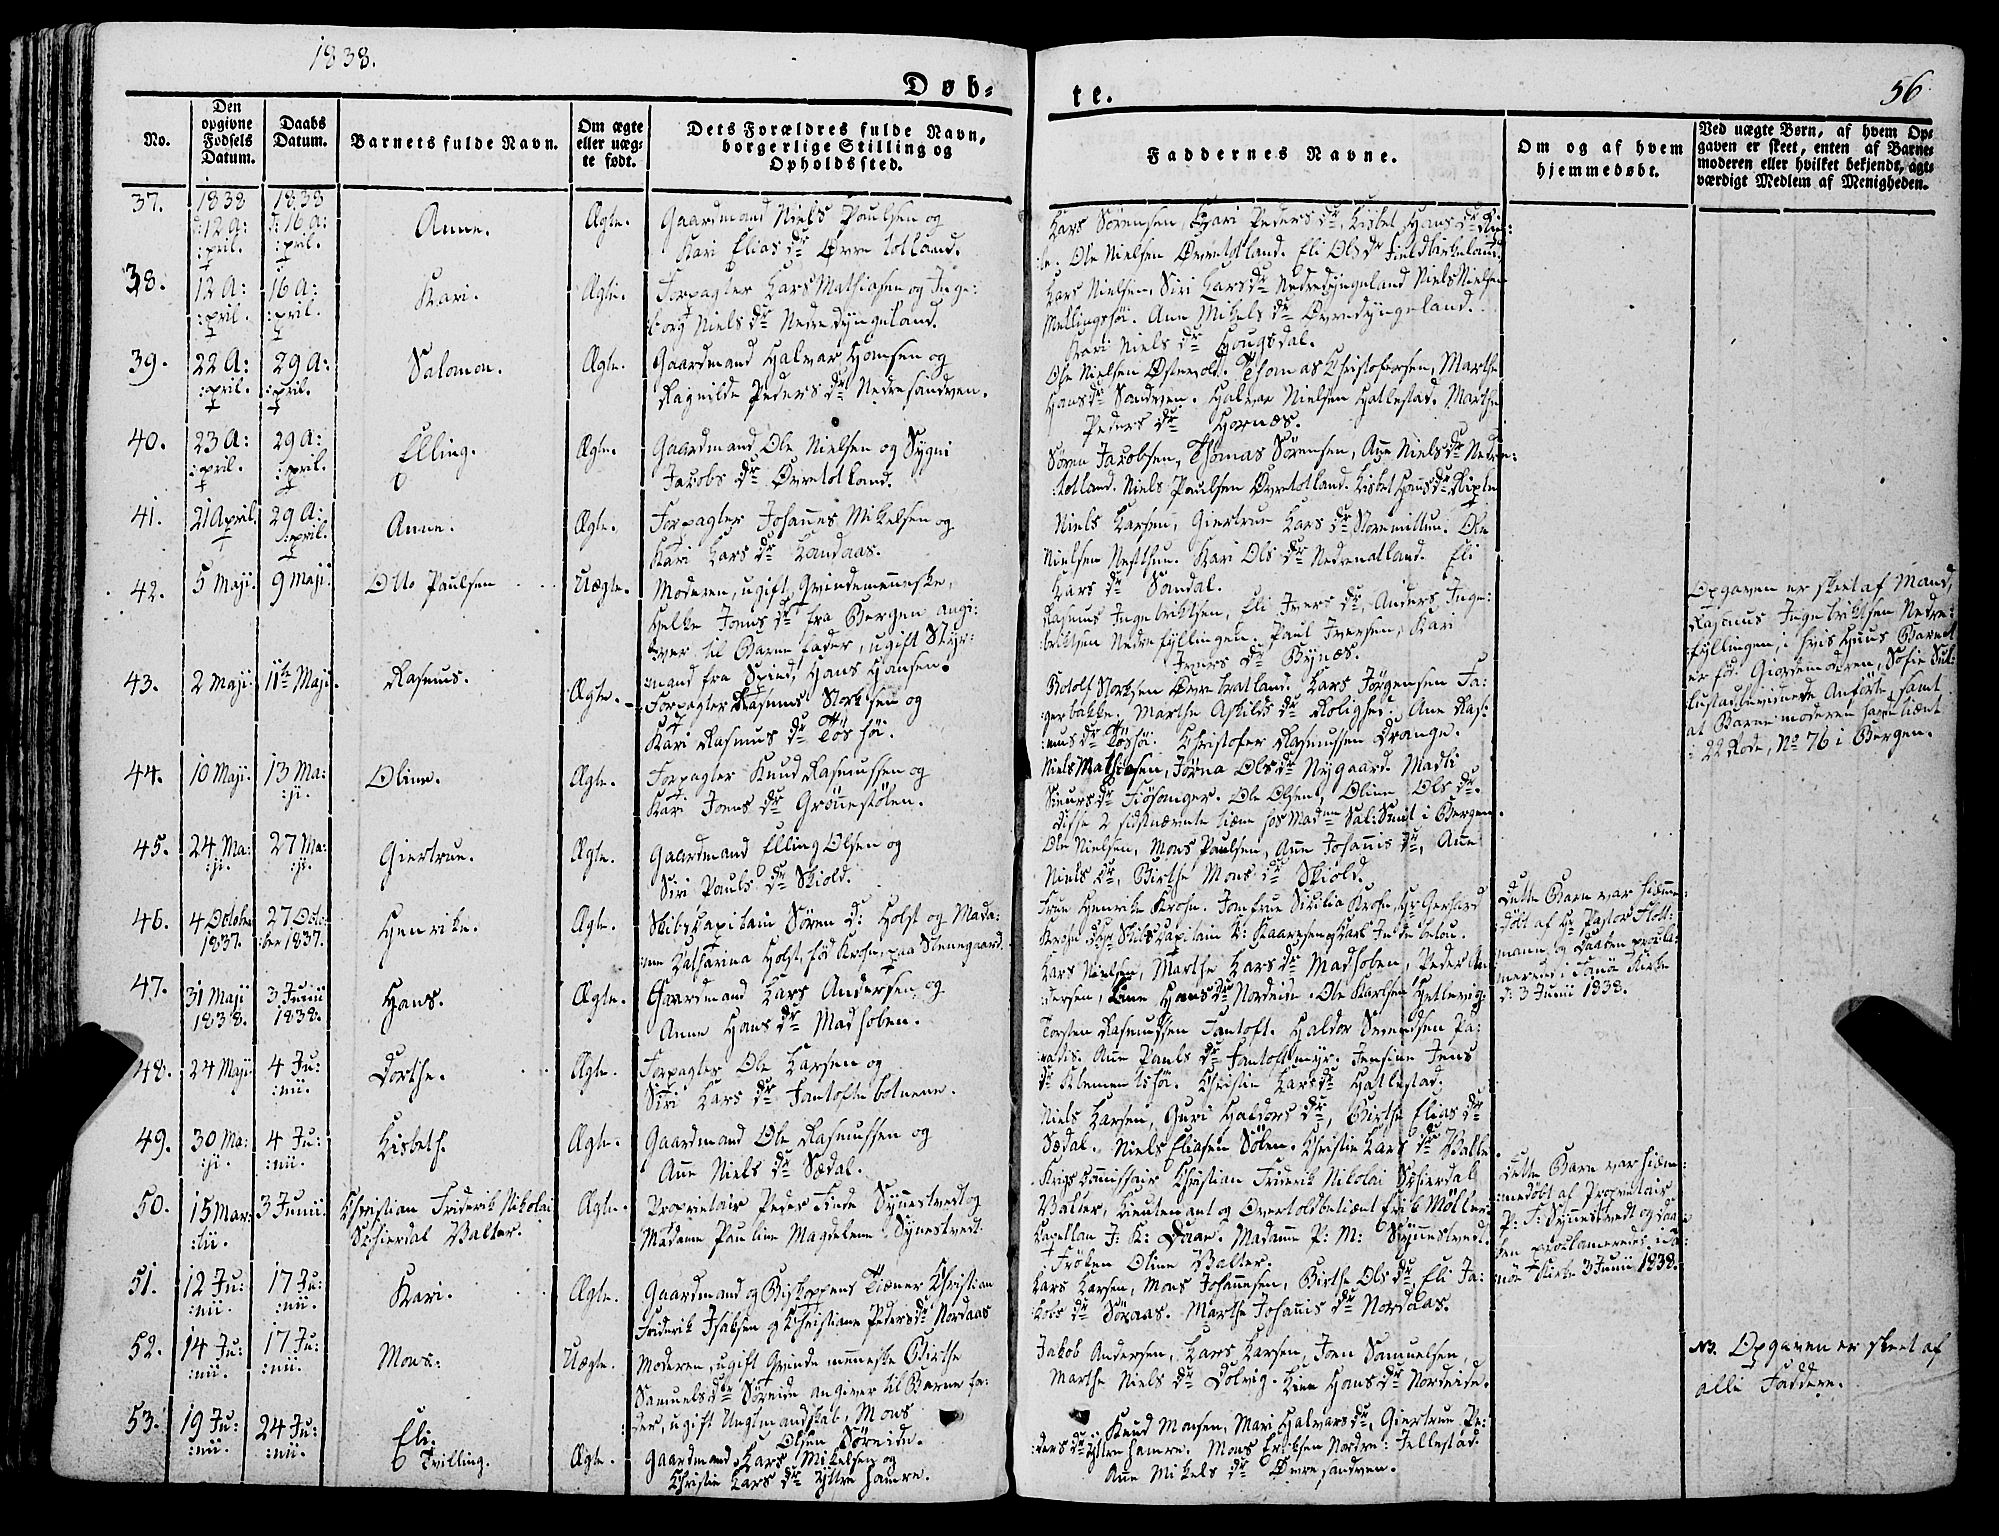 1838.
Døb-
te.
56
No.
Den opgivne Fødsels Datum.
Daabs Datum.
Barnets fulde Navn.
Om ægte eller uæg-te født.
Dets Forældres fulde Navn, borgerlige Stilling og Opholdssted.
Faddernes Navne.
Om og af hvem hjemmedøbt.
Ved uægte Børn, af hvem Op-gaven er skeet, enten af Barne-moderen eller hvilket bekjendt, agt-værdigt Medlem af Menigheden.
37.
1838
d: 12 A:
:pril.
1838
d: 16 A:
:pril.
Anne.
Ægte.
Gaardmand Niels Paulsen og
Kari Elias dr Øvre totland.
Lars Sørensen, Kari Peders dr, Lisbet Hans dr
Ole Nielsen Øvretotland. Eli Ols dr Fieldbirkeland.
38.
12 A:
:pril.
16 A:
:pril.
Kari.
Ægte.
Forpagter Lars Mathiasen og Inge:
:borg Niels dr Nedre dyngeland.
Lars Nielsen, Siri Lars dr Nedredyngeland Niels Nielsen
Mellingshøi. Ane Mikels dr Øvredyngeland.
Kari Niels dr Hougsdal.
39.
22 A:
:pril.
29 A:
:pril.
Salomon.
Ægte.
Gaardmand Halvar Hansen og
Ragnilde Peders dr Nedresandven.
Ole Nielsen Østevold. Thomas Christofersen, Marthe
Hans dr Sandven. Halvar Nielsen Hatlestad. Marthe
Peders dr Hornæs.
40.
23 A:
:pril.
29 A:
:pril.
Elling.
Ægte.
Gaardmand Ole Nielsen og Sygni
Jacobs dr Øvretotland.
Søren Jacobsen, Thomas Sørensen, Ane Niels dr Nedre:
:totland. Niels Paulsen Øvretotland. Lisbet Hans dr
41.
21 April
29 A:
:pril.
Anne.
Ægte.
Forpagter Johannes Mikelsen og
Kari Lars dr Landaas.
Niels Larsen, Giertrue Lars dr Storemillun. Ole
Nielsen Nesttun. Kari Ols dr Nedrenatland. Eli
Lars dr Sandal.
42.
5 Maji.
9 Maji.
Otto Paulsen
Uægte.
Moderen, ugift Qvindemenneske,
Helke Joens dr fra Bergen angi:
:ver til Barne fader, ugift Styr:
:mand fra Spind, Hans Hansen.
Rasmus Ingebriktsen, Eli Ivers dr, Anders Inge:
briktsen Nedrefyllingen. Paul Iversen, Kari
Ivers dr Bynæs.
Opgaven er skeet af Mand,
Rasmus Ingebriktsen Nedre:
:fyllingen, i hvis Huus Barnet
er fød. Giordemoderen, Sofie
bevidnede Anførte, samt
at Barnemoderen have tient
i 22 Rode, No 76 i Bergen.
43.
2 Maji
11te Maji.
Rasmus.
Ægte.
Forpagter Rasmus Storksen og
Kari Rasmus dr Løshøi.
Botolf Storksen Øvre Natland. Lars Jørgensen Fa:
:gerbakke. Marthe Askilds dr Rolighed. Ane Ras:
:mus dr Løshøi. Christofer Rasmussen Drange.
44.
10 Maji.
13 Ma:
:ji.
Oline.
Ægte.
Forpagter Knud Rasmussen og
Kari Joens dr Grønnestølen.
Niels Mathiasen, Jørna Ols dr Nygaard. Madli
Siurs dr Fiøsanger. Ole Olsen, Oline Ols dr.
disse 2 sidstnævnte tiene hos Madme Sal: Smit i Bergen.
45.
24 Ma:
:ji.
27 Ma:
:ji.
Giertrue.
Ægte.
Gaardmand Elling Olsen og
Siri Pauls dr Skiold.
Ole Nielsen, Mons Paulsen, Ane Johannis dr, Ane
Niels dr, Birthe Mons dr Skiold.
46.
4 October
1837.
27 Octo:
:ber 1837.
Henrike.
Ægte.
Skibskapitain Søren D: Holst og Mada:
:me Catharina Holst, fød Krohn, paa Stenegaard.
Frue Henrike Krohn. Jomfrue Sicilia Krohn, Hr Gerhard
Krohn
Dette Barn var hiemme:
:døbt af Hr Pastor
mann, og Daaben procla:
:meret i Fanø Kirke
d: 3 Junii 1838.
47.
31 Maji
1838.
3 Junii
1838.
Hans.
Ægte.
Gaardmand Lars Andersen og
Anne Hans dr Madhoben.
Lars Nielsen, Marthe Lars dr Madhoben, Peder An:
:dersen, Line Hans dr Nordeide. Ole Karlsen Hetlevig.
48.
24 Maji
4 Ju:
:nii.
Dorthe.
Ægte.
Forpagter Ole Larsen og
Siri Lars dr Fantoftebotnene.
Torsten Rasmussen Fantoft. Haldor Sevendsen Pa:
:radis. Ane Pauls dr Fantoftmyr. Jensine Jens
dr Klementshøi. Christie Lars dr Hatlestad.
49.
30 Ma:
:ji.
4 Ju:
:nii.
Lisbeth.
Ægte.
Gaardmand Ole Rasmussen og
Ane Niels dr Sædal.
Niels Larsen, Guri Haldors dr, Birthe Elias dr
Sædal. Niels Eliasen Sølen. Christie Lars dr
50.
15 Mar:
:tii.
3 Junii.
Christian Friderik Nikolai
Schierdal Balter.
Ægte.
Proprietair Peder Finde Synnestvedt og
Madame Pauline Magdelene Synestvedt.
Krigscommissair Christian Friderik Nikolai Schierdal
Balter, Lieutenant og Overtoldbetient Erik Møller.
Capellan J: K: Daae. Madame P: M: Synnestvedt.
Frøken Oline Balter.
Dette Barn var hiem:
:medøbt af Proprietair
P: F: Synnestvedt og Daa:
:ben proclameret i Fa:
:nøe Kirke 3 Junii 1838.
51.
12 Ju:
:nii.
17 Ju:
:nii.
Kari.
Ægte.
Gaardmand og Biskoppens Tiener Christian
Friderik Isaksen og Christiane Peders dr Nordaas
Lars Larsen, Mons Johannesen, Birthe Ols dr, Eli Ja:
kobs dr Søraas. Marthe Johannis dr Nordaas.
52.
14 Ju:
:nii.
17 Ju:
:nii.
Mons.
Uægte.
Moderen, ugift Qvinde menneske Birthe
Samuels dr Søreide angiver til Barne fa:
der, ugift Ungmandskab, Mons
Olsen Søreide.
Jakob Andersen, Lars Larsen, Joen Samuelsen,
Marthe Niels dr Dolvig. Line Hans dr Nordeide.
NB. Opgaven er skeet af
alle Faddere.
53.
19 Ju:
:nii.
24 Ju:
:nii.
Eli.
Tvilling.
Ægte.
Gaardmand Lars Mikelsen og
Christie Lars dr Yttre hamre.
Knud Monsen, Mari Halvars dr, Giertrue Pe:
:ders dr Yttre hamre. Mons Eriksen Nordre: Tellestad.
Ane Mikels dr Øvresandven.